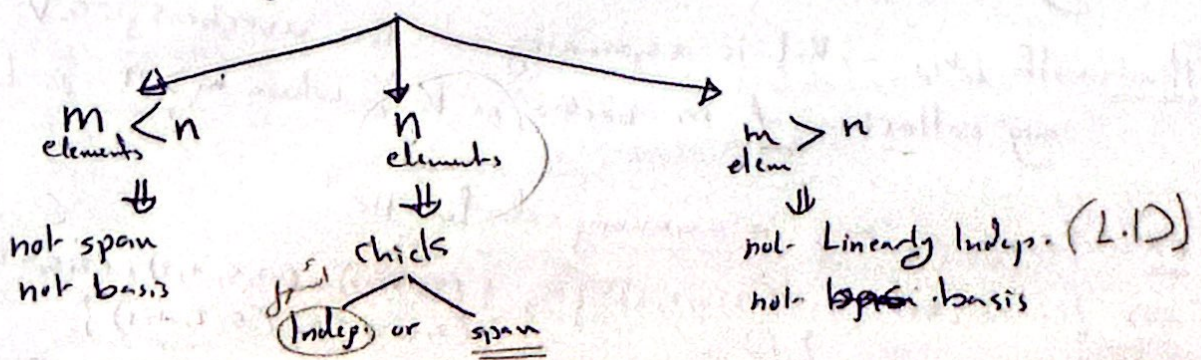 m < n
elements
not span
not basis
n
elements
chicks
Indep. or span
m > n
elem
not Linearly Indep. (L.D)
not basis